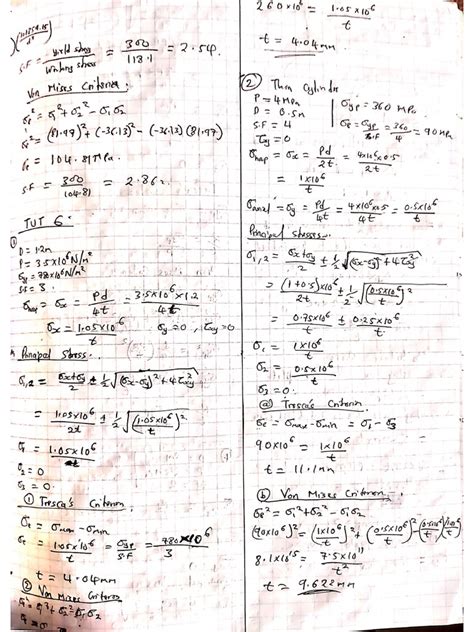 S.F = Yield stress / Working stress = 300 / 118.1 = 2.54.
Von Mises Criterion:
σe² = σ1² + σ2² - σ1σ2
σe² = (81.97)² + (-36.13)² - (-36.13)(81.97)
σe = 104.81 MPa.
S.F = 300 / 104.81 = 2.862.
TUT 6:
①
D = 1.2m
P = 3.5x10⁶ N/m²
σyp = 780x10⁶ N/m²
S.F = 3
σhoop = σx = Pd / 4t = 3.5x10⁶ x 1.2 / 4t
σx = 1.05x10⁶ / t σy = 0, τxy = 0
Principal Stress:
σ1,2 = σx+σy / 2 ± 1/2 √(σx-σy)² + 4τxy²
= 1.05x10⁶ / 2t ± 1/2 √(1.05x10⁶ / t)²
σ1 = 1.05x10⁶ / t
σ2 = 0
σ3 = 0.
① Tresca's Criterion
σe = σmax - σmin
σe = 1.05x10⁶ / t = σyp / S.F = 780x10⁶ / 3
t = 4.04mm
② Von Mises Criterion
σe² = σ1² + σ2² - σ1σ2
260x10⁶ = 1.05x10⁶ / t
t = 4.04mm
② Thin Cylinder
P = 4MPa σyp = 360 MPa
D = 0.5m
S.F = 4 σe = σyp / S.F = 360 / 4 = 90MPa
τxy = 0
σhoop = σx = Pd / 2t = 4x10⁶x0.5 / 2t
= 1x10⁶ / t
σaxial = σy = Pd / 4t = 4x10⁶x0.5 / 4t = 0.5x10⁶ / t
Principal stresses:
σ1,2 = σx+σy / 2 ± 1/2 √(σx-σy)² + 4τxy²
= (1+0.5)x10⁶ / 2t ± 1/2 √(0.5x10⁶ / t)²
= 0.75x10⁶ / t ± 0.25x10⁶ / t
σ1 = 1x10⁶ / t
σ2 = 0.5x10⁶ / t
σ3 = 0.
ⓐ Tresca's Criterion.
σe = σmax - σmin = σ1 - σ3
90x10⁶ = 1x10⁶ / t
t = 11.1mm
ⓑ Von Mises Criterion.
σe² = σ1² + σ2² - σ1σ2
(90x10⁶)² = (1x10⁶ / t)² + (0.5x10⁶ / t)² - (0.5x10⁶ / t)(1x10⁶ / t)
8.1x10¹⁵ = 7.5x10¹¹ / t²
t = 9.622mm